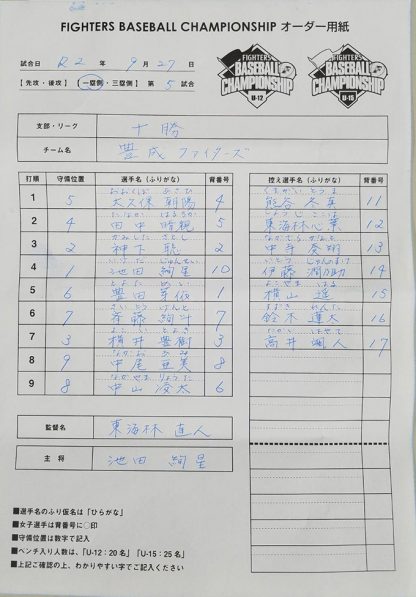 FIGHTERS BASEBALL CHAMPIONSHIP オーダー用紙
試合日 R2 年 9 月 27 日
【 先攻・後攻 】 【 一塁側・三塁側 】 第 5 試合
FIGHTERS BASEBALL CHAMPIONSHIP U-12
FIGHTERS BASEBALL CHAMPIONSHIP U-15
支部・リーグ 十勝
チーム名 豊成ファイターズ
打順 守備位置 選手名(ふりがな) 背番号
1 5 おおくぼ あさひ 大久保 朝陽 4
2 4 たなか はるちか 田中 晴親 5
3 2 かみした さとし 神下 聡 2
4 1 いけだ じゅんせい 池田 絢星 10
5 6 とよた めい 豊田 芽依 1
6 7 さいとう けんと 斉藤 絢斗 7
7 3 よこい とよき 横井 豊樹 3
8 9 なかお あみ 中尾 亜美 8
9 8 なかやま りょうた 中山 凌太 6
監督名 東海林 直人
主将 池田 絢星
控え選手名(ふりがな) 背番号
くまがい とうま 熊谷 冬真 11
東海林 心葉 12
中手 奏翔 13
伊藤 潤乃助 14
よこやま はる 横山 遥 15
すずき れんた 鈴木 蓮太 16
たかい はやて 高井 颯人 17
■選手名のふり仮名は「ひらがな」
■女子選手は背番号に○印
■守備位置は数字で記入
■ベンチ入り人数は、「U-12:20名」「U-15:25名」
■上記ご確認の上、わかりやすい字でご記入ください